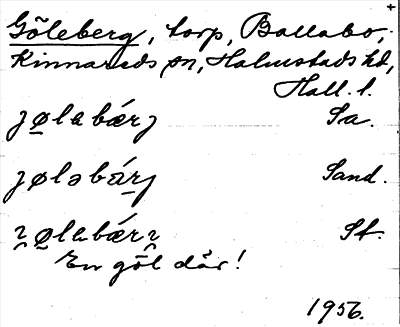 +
Göleberg, torp, Ballabo,
Kinnareds sn, Halmstads hd,
Hall. l.
jølabærj Sa.
jøləbárj Sand.
St.
En göl där!
1956.